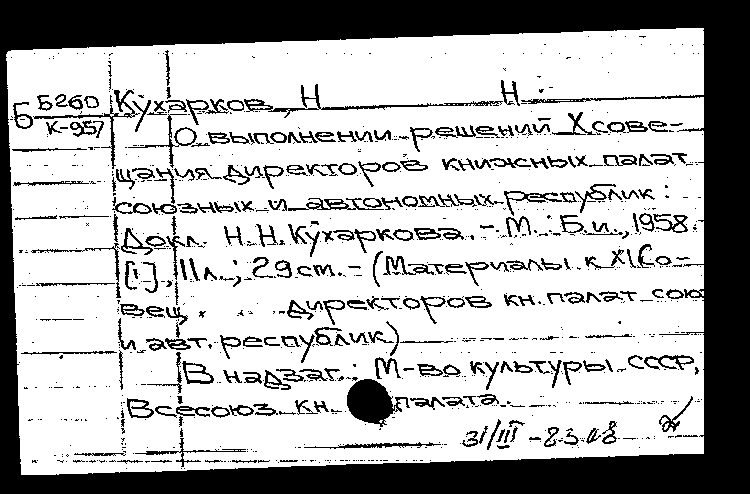 Б Б260/К-957 Кухарков, Н Н.
О выполнении решений X сове-
щания директоров книжных палат
союзных и автономных республик:
Докл. Н.Н. Кухаркова. - М.: Б.и., 1958.
[1], 11л.; 29 cm. - (Материалы к XI Со-
вещ. директоров кн. палат сою
и авт. республик)
В надзаг.: М-во культуры СССР,
Всесоюз. кн. палата.
31/III